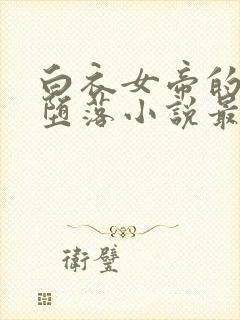 白衣女帝的
堕落小說最
衛璧